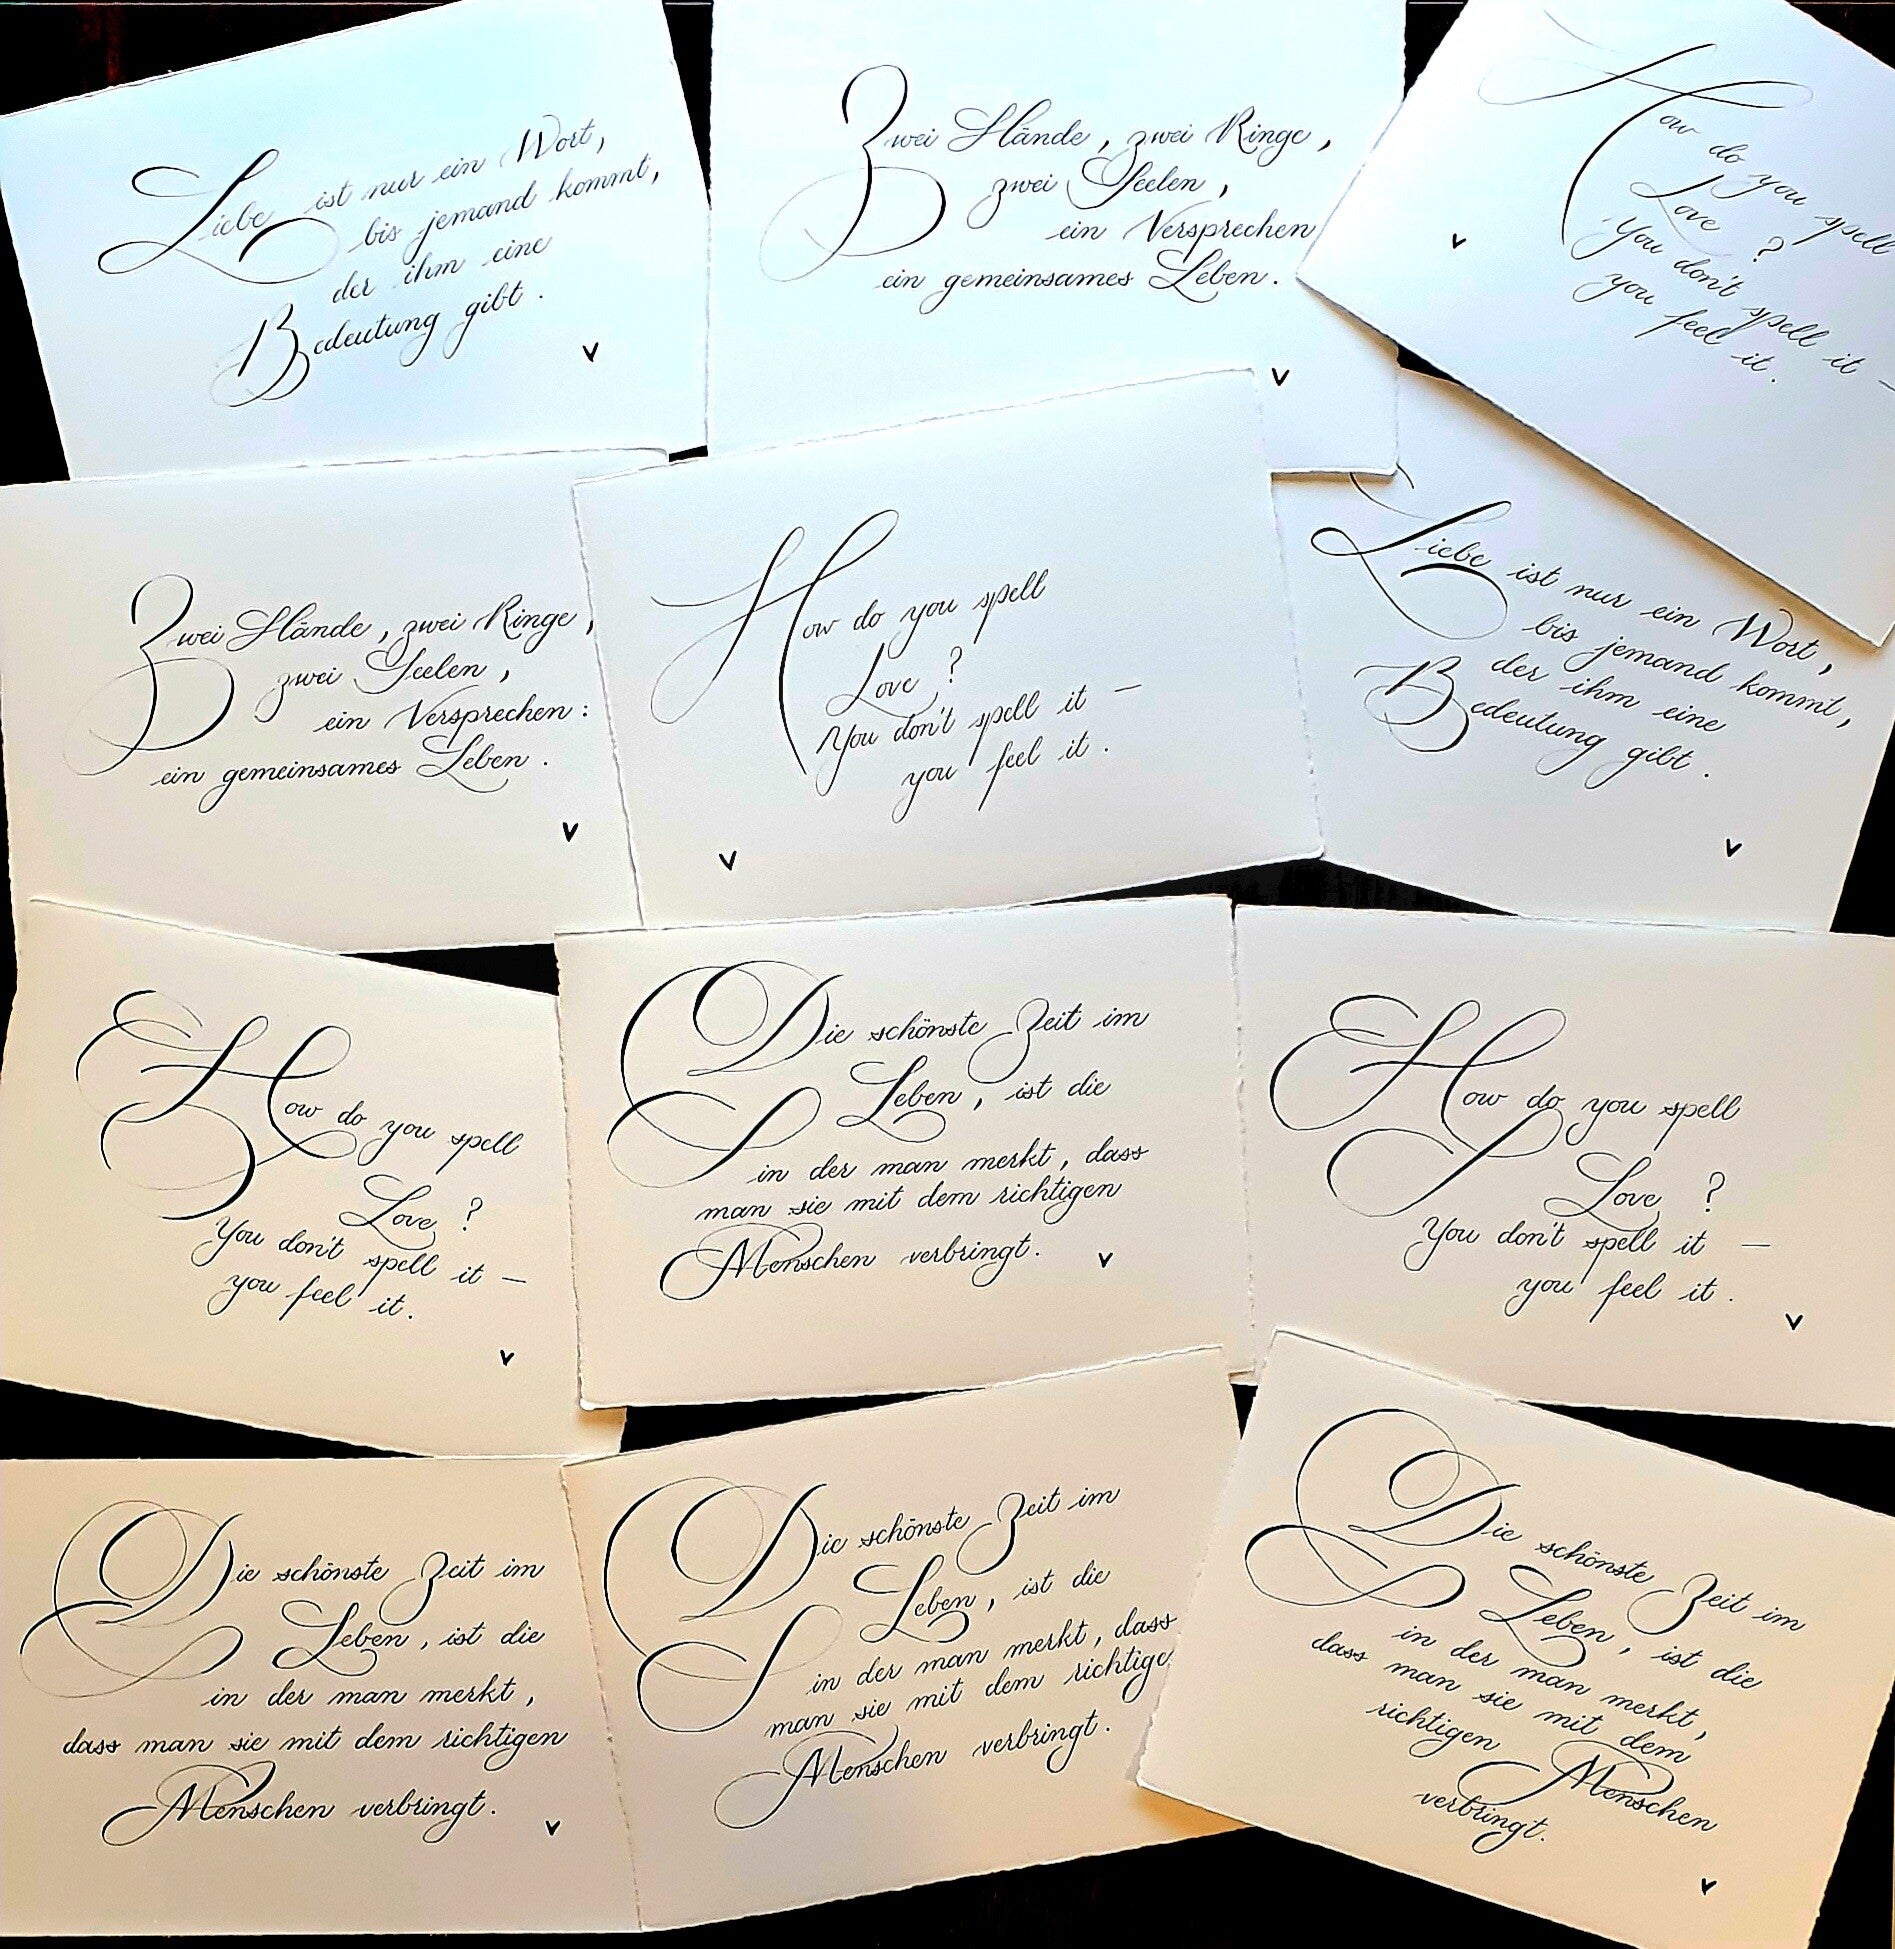 Liebe ist nur ein Wort,
bis jemand kommt,
der ihm eine
Bedeutung gibt.
v
Zwei Hände, zwei Ringe,
zwei Seelen,
ein Versprechen
ein gemeinsames Leben.
v
How do you spell
Love?
You don't spell it –
you feel it.
v
Zwei Hände, zwei Ringe,
zwei Seelen,
ein Versprechen:
ein gemeinsames Leben.
v
How do you spell
Love?
You don't spell it –
you feel it.
v
Liebe ist nur ein Wort,
bis jemand kommt,
der ihm eine
Bedeutung gibt.
v
How do you spell
Love?
You don't spell it –
you feel it.
v
Die schönste Zeit im
Leben, ist die
in der man merkt, dass
man sie mit dem richtigen
Menschen verbringt.
v
How do you spell
Love?
You don't spell it –
you feel it.
v
Die schönste Zeit im
Leben, ist die
in der man merkt,
dass man sie mit dem richtigen
Menschen verbringt.
v
Die schönste Zeit im
Leben, ist die
in der man merkt, dass
man sie mit dem richtige
Menschen verbringt.
Die schönste Zeit im
Leben, ist die
in der man merkt,
dass man sie mit dem
richtigen Menschen
verbringt.
v